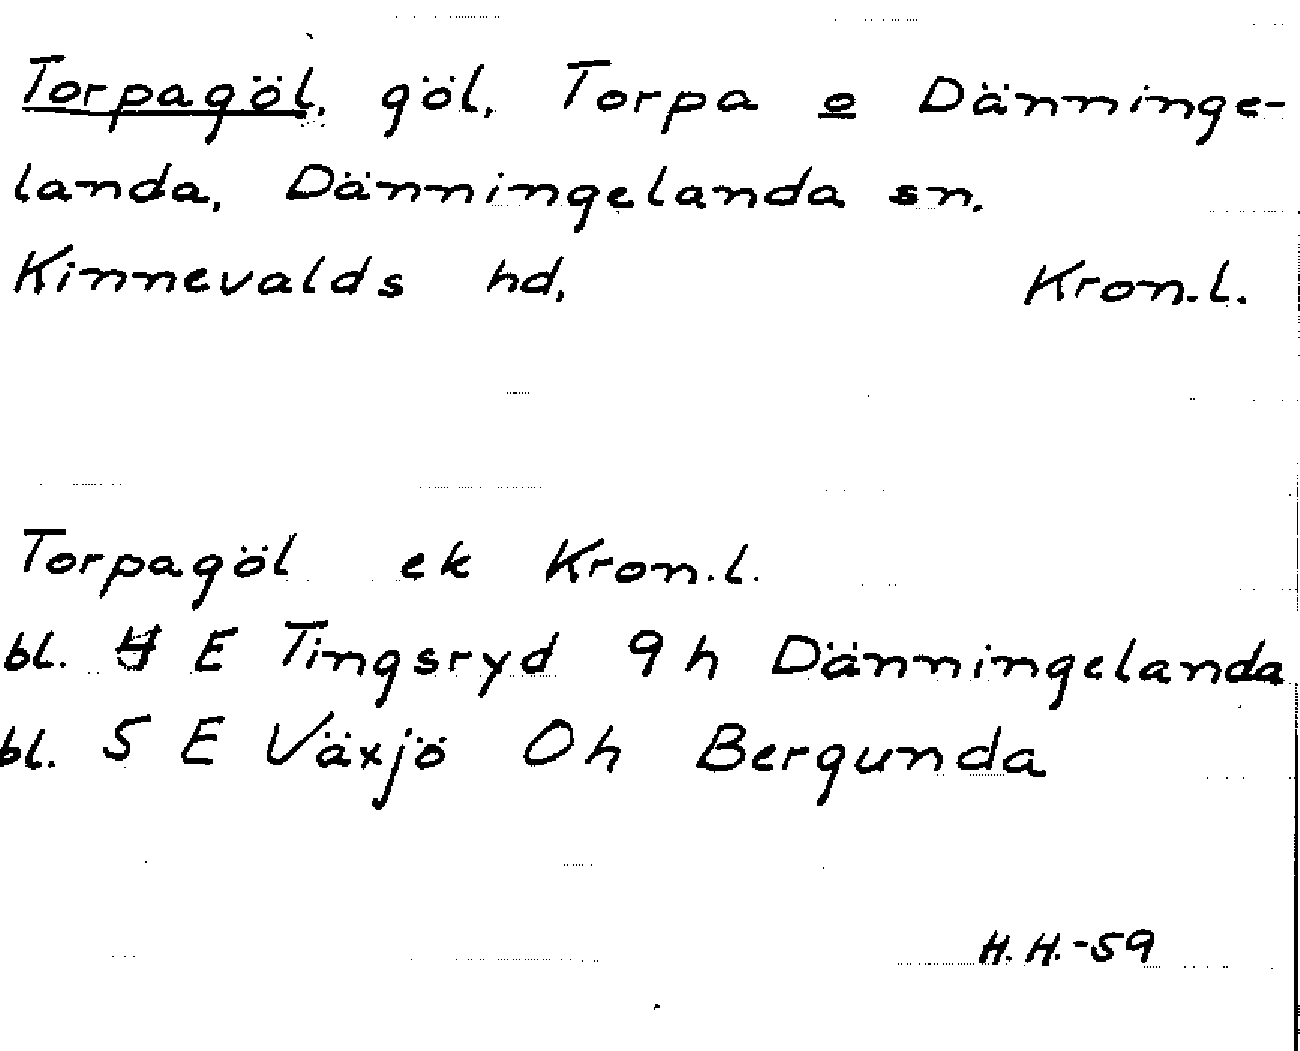 Torpagöl, göl, Torpa o Dänninge-
landa, Dänningelanda sn.
Kinnevalds hd, Kron.l.
Torpagöl ek Kron.l.
bl. 4 E Tingsryd 9 h Dänningelanda
bl. 5 E Växjö 0h Bergunda
H.H.-59